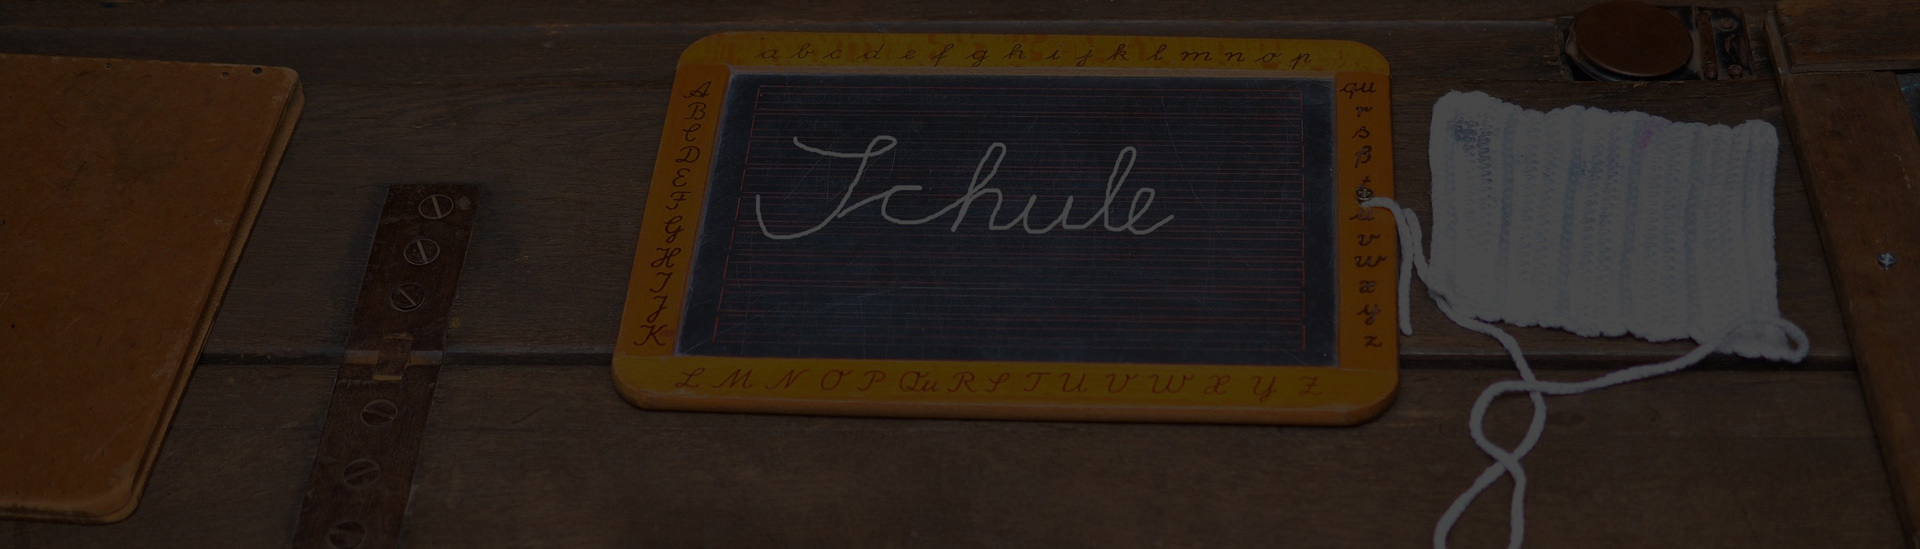 a b c d e f g h i j k l m n o p
A
B
C
D
E
F
G
H
I
J
K
Schule
qu
r
s
ß
t
u
v
w
x
y
z
L M N O P Qu R S T U V W X Y Z